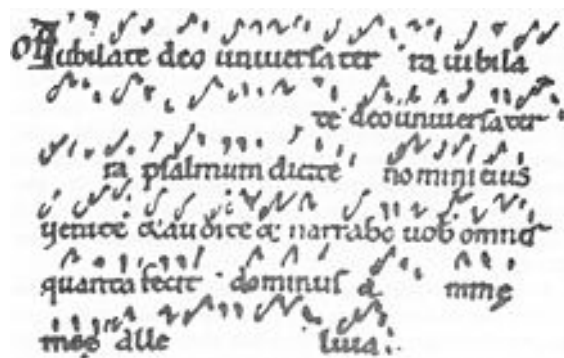 Off Iubilate deo universa ter ra iubila
te deo universa ter
ra psalmum dicite nomini eius
venite & audite & narrabo vob omnes
quanta fecit dominus a nime
mee alle luia.